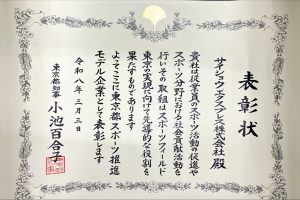 表彰状
サイショウエクスプレス株式会社 殿
貴社は従業員のスポーツ活動の促進や
スポーツ分野における社会貢献活動を
行いその取組はスポーツフィールド
東京の実現に向けて先導的な役割を
果たすものであります
よってここに東京都スポーツ推進
モデル企業として表彰します
令和八年三月三日
東京都知事 小池百合子